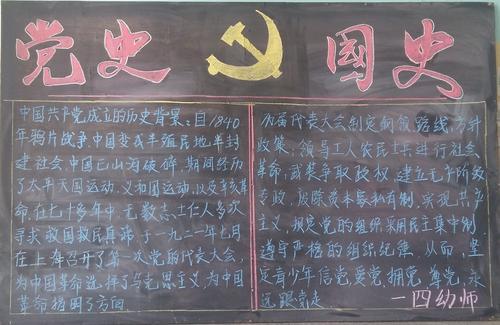 党史 国史
中国共产党成立的历史背景：自1840
年鸦片战争,中国变成半殖民地半封
建社会,中国已山河破碎,期间经历
了太平天国运动、义和团运动,以及辛亥革
命,在七十多年中,无数志士仁人多次
寻求救国救民真谛 于一九二一年七月
在上海召开了第一次党的代表大会,
为中国革命选择了马克思主义,为中国
革命指明了方向
历届代表大会制定纲领路线、方针
政策、领导工人农民士兵进行社会
革命,武装争取政权 建立无产阶级
专政,废除资本家私有制,实现共产
主义,规定党的组织采用民主集中制
遵守严格的组织纪律,从而,坚
定青少年信党、爱党、拥党、尊党、永
远跟党走
一四幼师